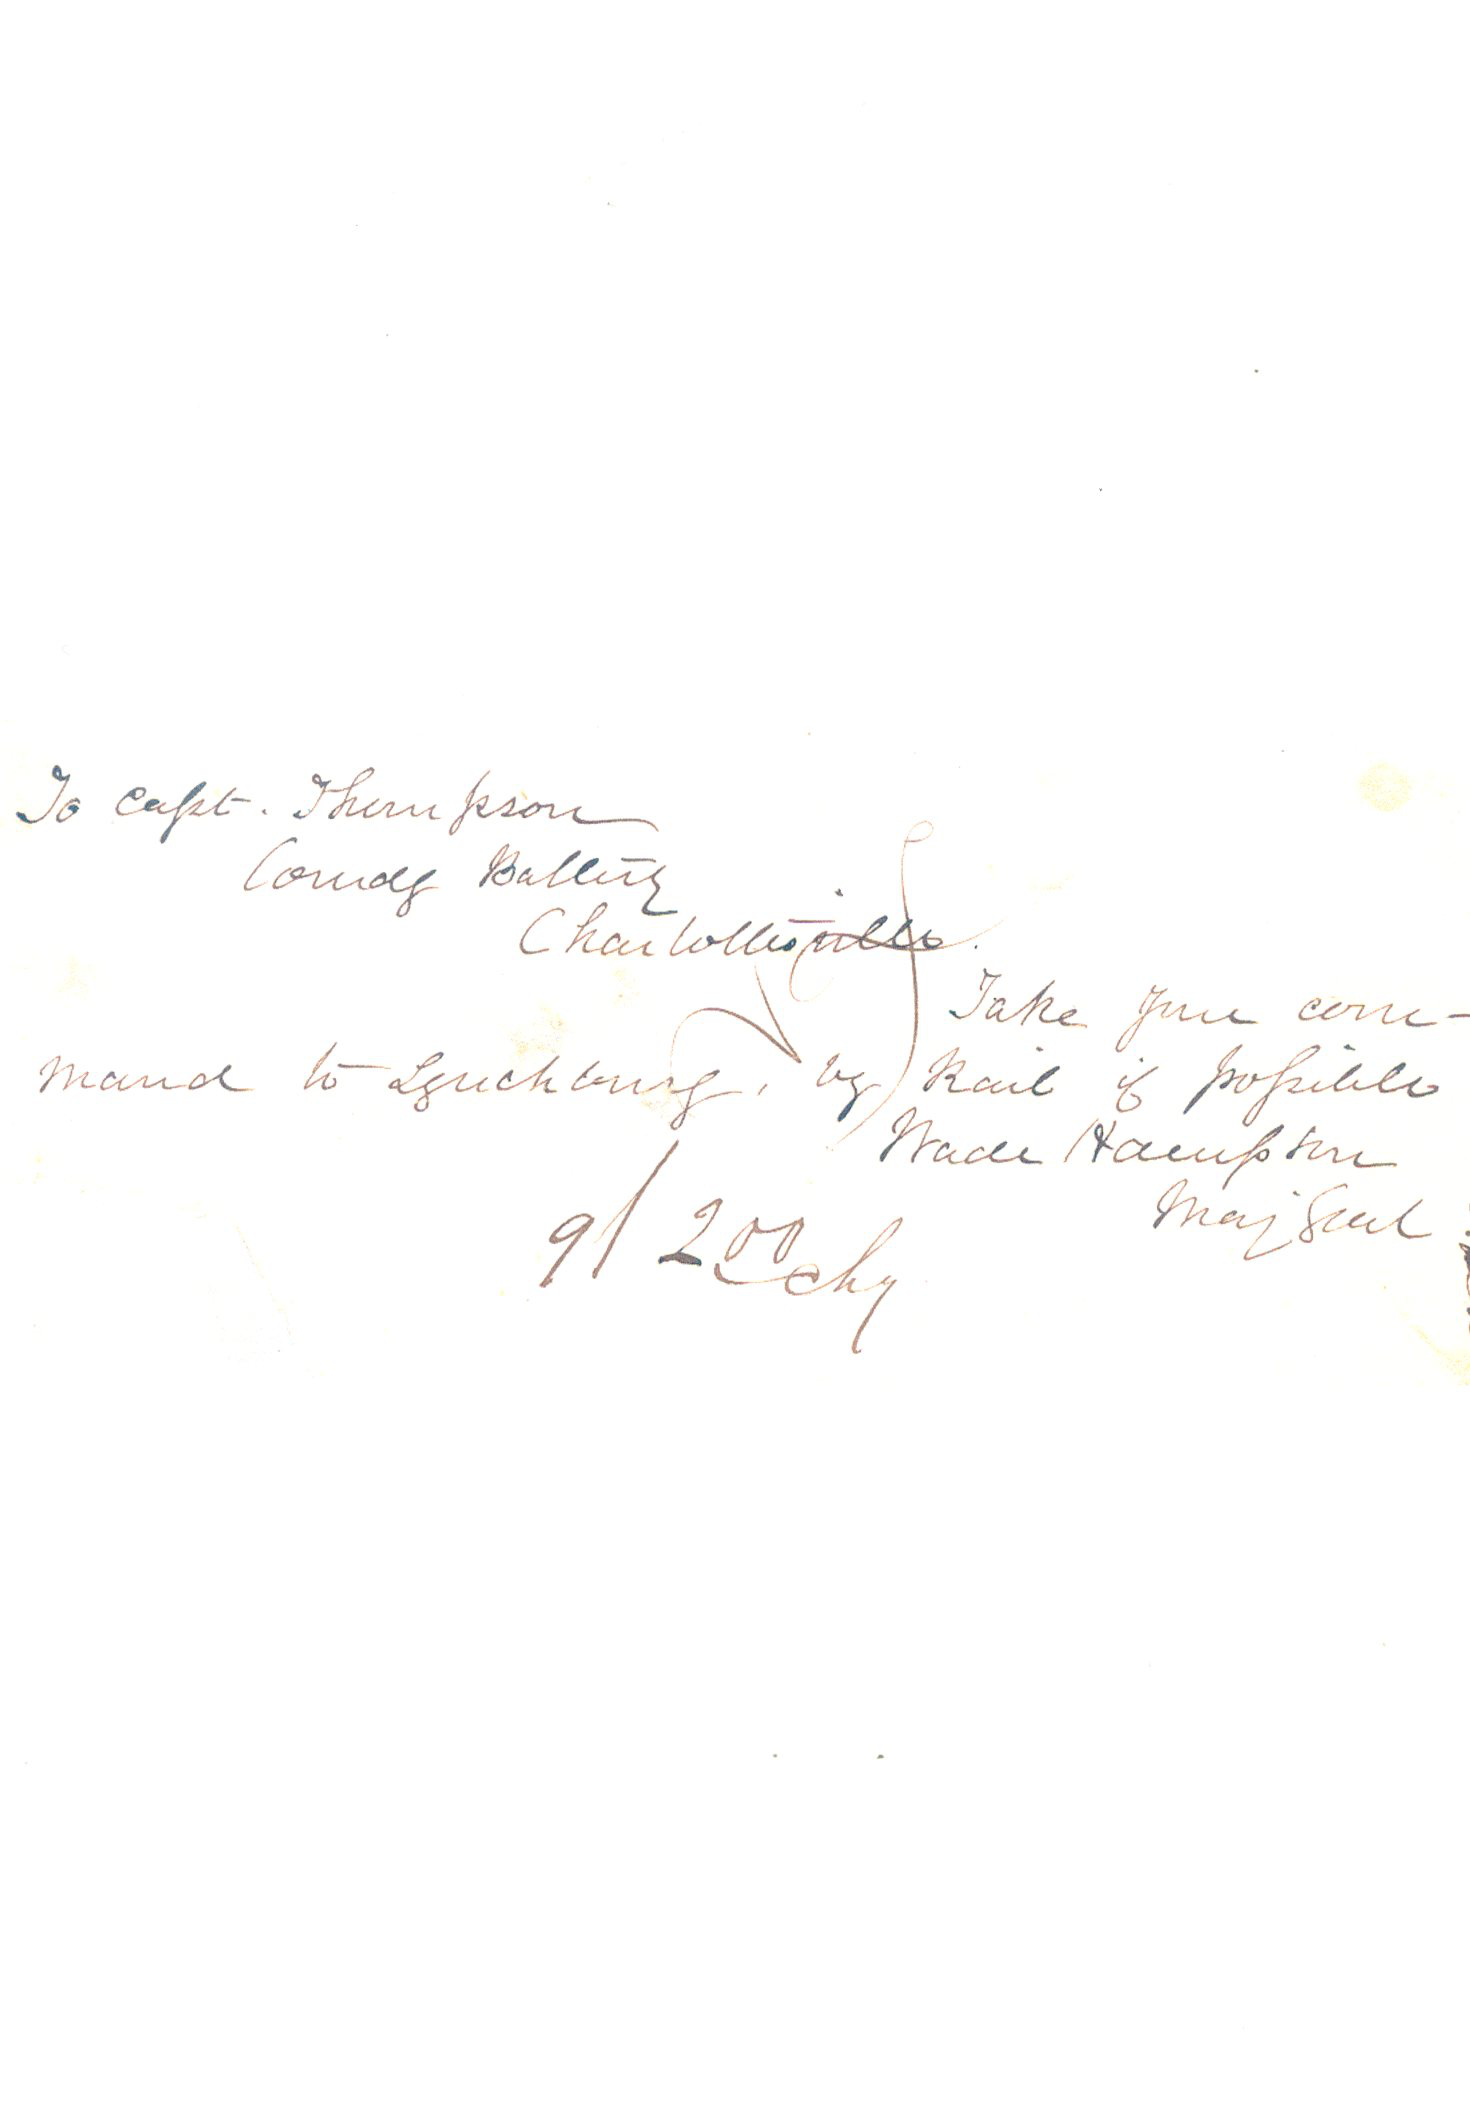 To Capt. Thompson
Comdg Battery
Charlottesville.
Take your com-
mand to Lynchburg, by Rail if possible
Wade Hampton
Maj Genl
9/200 chg